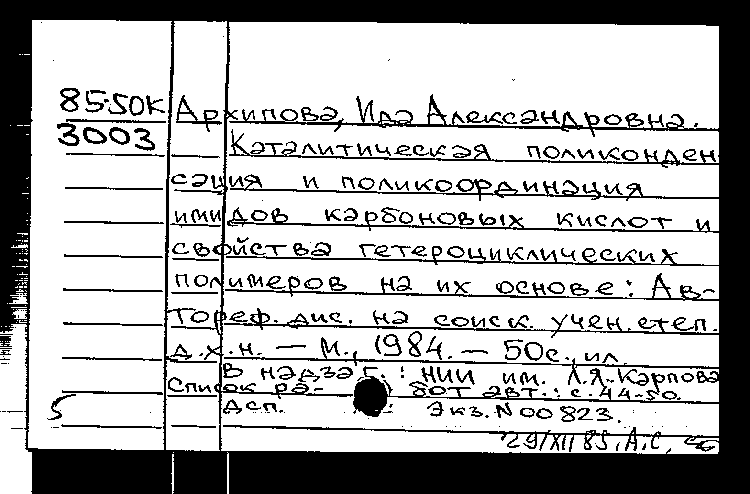 85-50К
3003
Архипова, Ида Александровна.
Каталитическая поликонден-
сация и поликоординация
имидов карбоновых кислот и
свойства гетероциклических
полимеров на их основе: Ав-
тореф. дис. на соиск. учен. степ.
д.х.н. — М., 1984. — 50с., ил.
В надзаг.: НИИ им. Л.Я.Карпова
Список ра- бот авт.: с.44-50.
5 Дсп. Экз.N 00823.
29/XII 85. А.С.